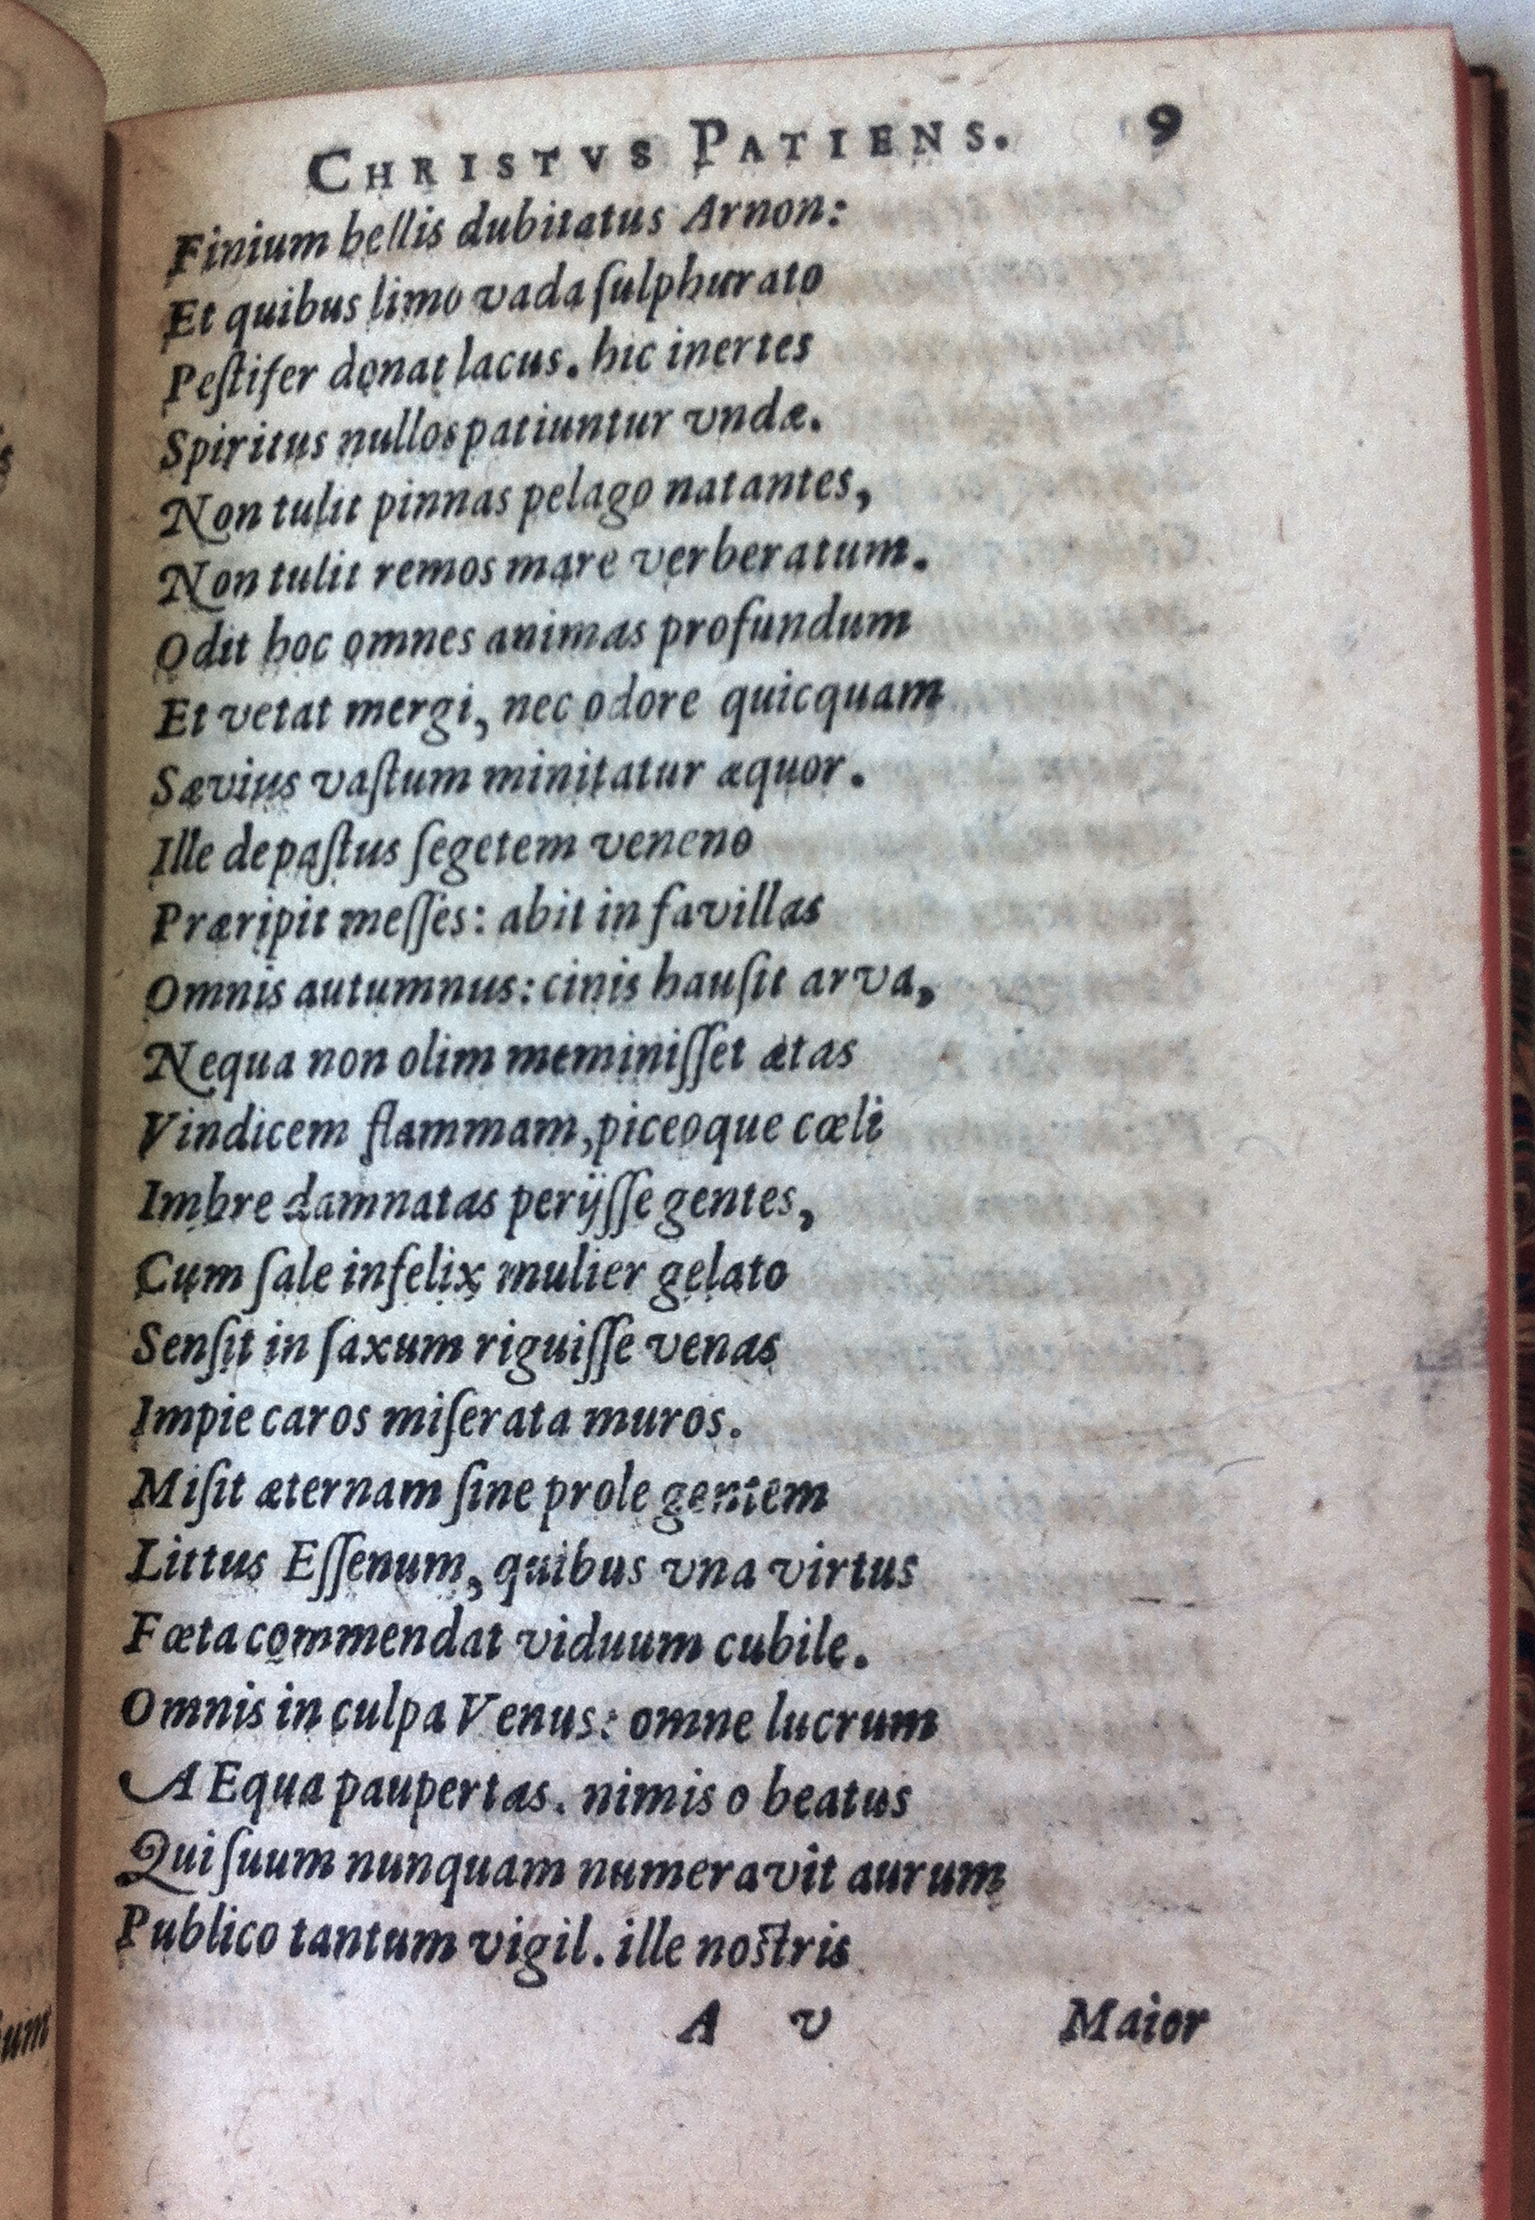 CHRISTVS PATIENS. 9
Finium bellis dubitatus Arnon:
Et quibus limo vada ſulphurato
Peſtifer donat lacus. hic inertes
Spiritus nullos patiuntur vndæ.
Non tulit pinnas pelago natantes,
Non tulit remos mare verberatum.
Odit hoc omnes animas profundum
Et vetat mergi, nec odore quicquam
Sævius vaſtum minitatur æquor.
Ille depaſtus ſegetem veneno
Præripit meſſes: abit in favillas
Omnis autumnus: cinis hauſit arva,
Nequa non olim meminiſſet ætas
Vindicem flammam, piceoque cœli
Imbre damnatas perijſſe gentes,
Cum ſale infelix mulier gelato
Senſit in ſaxum riguiſſe venas
Impie caros miſerata muros.
Miſit æternam ſine prole gentem
Littus Eſſenum, quibus vna virtus
Fœta commendat viduum cubile.
Omnis in culpa Venus: omne lucrum
AEqua paupertas. nimis o beatus
Qui ſuum nunquam numeravit aurum
Publico tantum vigil. ille noſtris
A v Maior